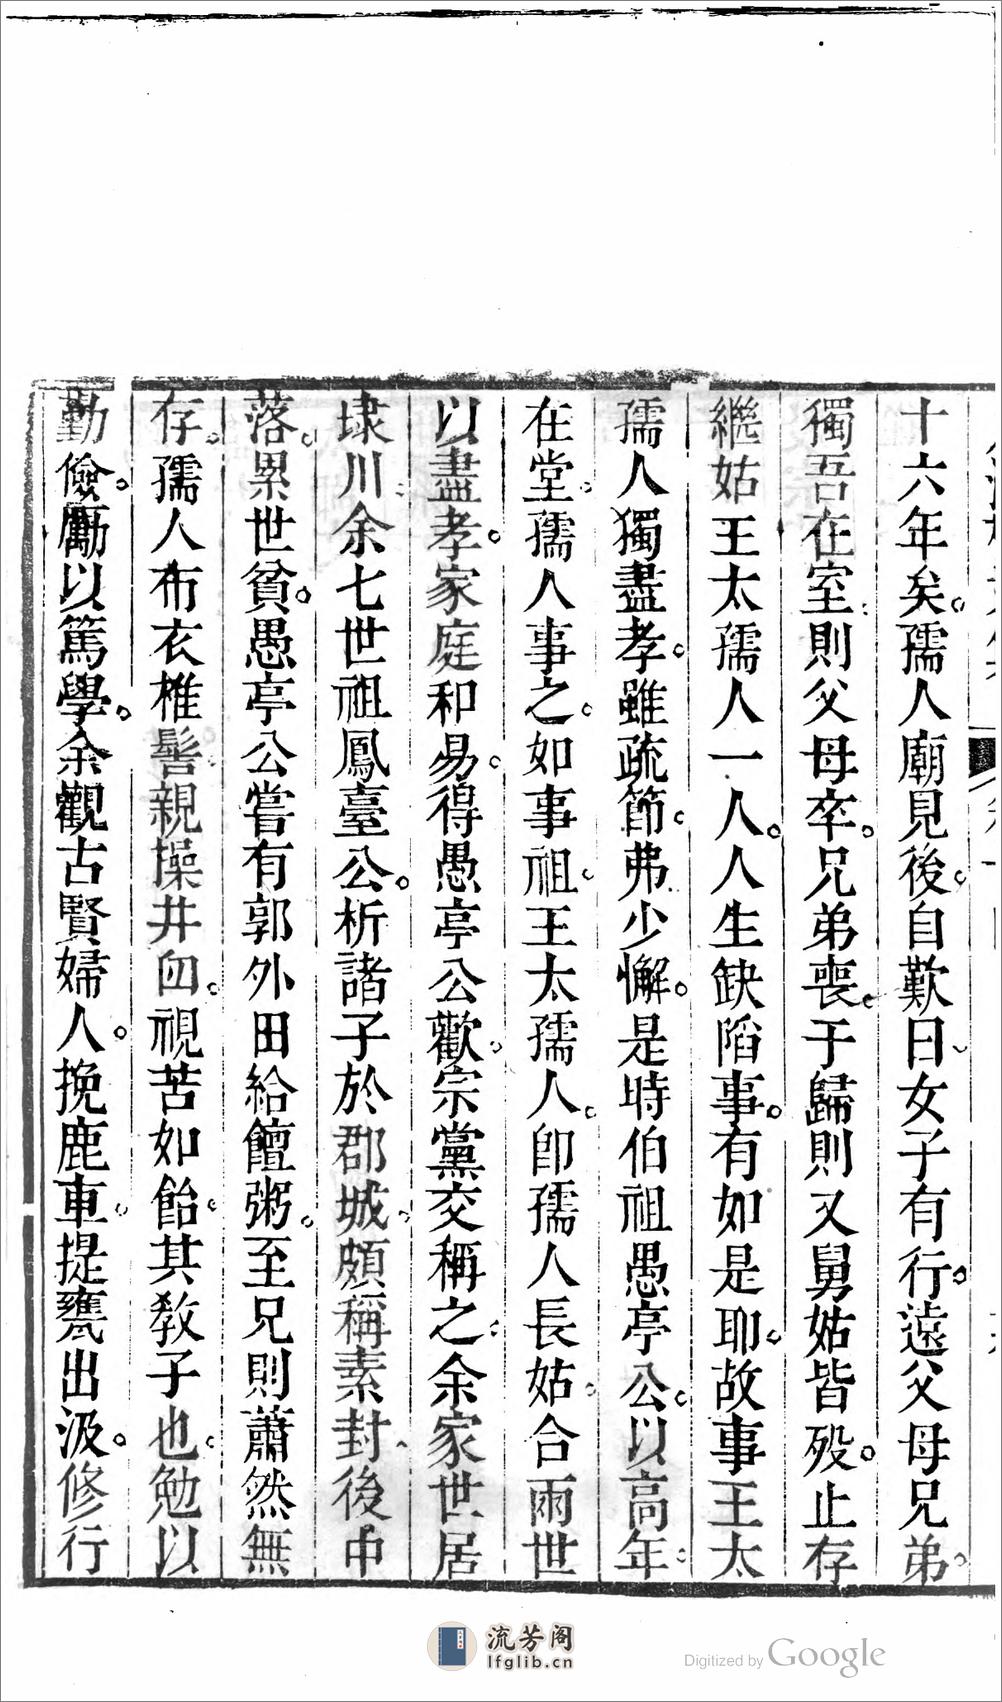 十六年矣。孺人廟見後。自歎曰。女子有行。遠父母兄弟。
獨吾在室。則父母卒。兄弟喪。于歸則又舅姑皆歿。止存
繼姑王太孺人一人。人生缺陷事。有如是耶。故事王太
孺人獨盡孝。雖疏節。弗少懈。是時伯祖愚亭公。以高年。
在堂。孺人事之。如事祖。王太孺人。卽孺人長姑。合兩世
以盡孝。家庭和易。得愚亭公歡。宗黨交稱之。余家世居
埭川。余七世祖鳳臺公。析諸子於郡城。頗稱素封。後中
落。累世貧。愚亭公嘗有郭外田給饘粥。至兄則蕭然無
存。孺人布衣椎髻。親操井臼。視苦如飴。其敎子也。勉以
勤儉。勵以篤學。余觀古賢婦人。挽鹿車。提甕出汲。修行
流芳阁
lfglib.cn
Digitized by Google